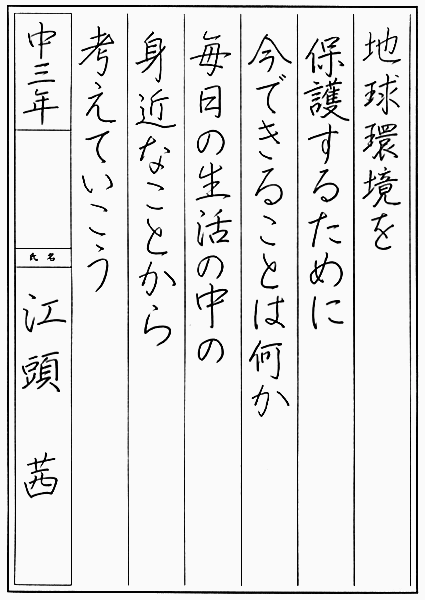 地球環境を
保護するために
今できることは何か
毎日の生活の中の
身近なことから
考えていこう
中三年
氏名
江頭 茜